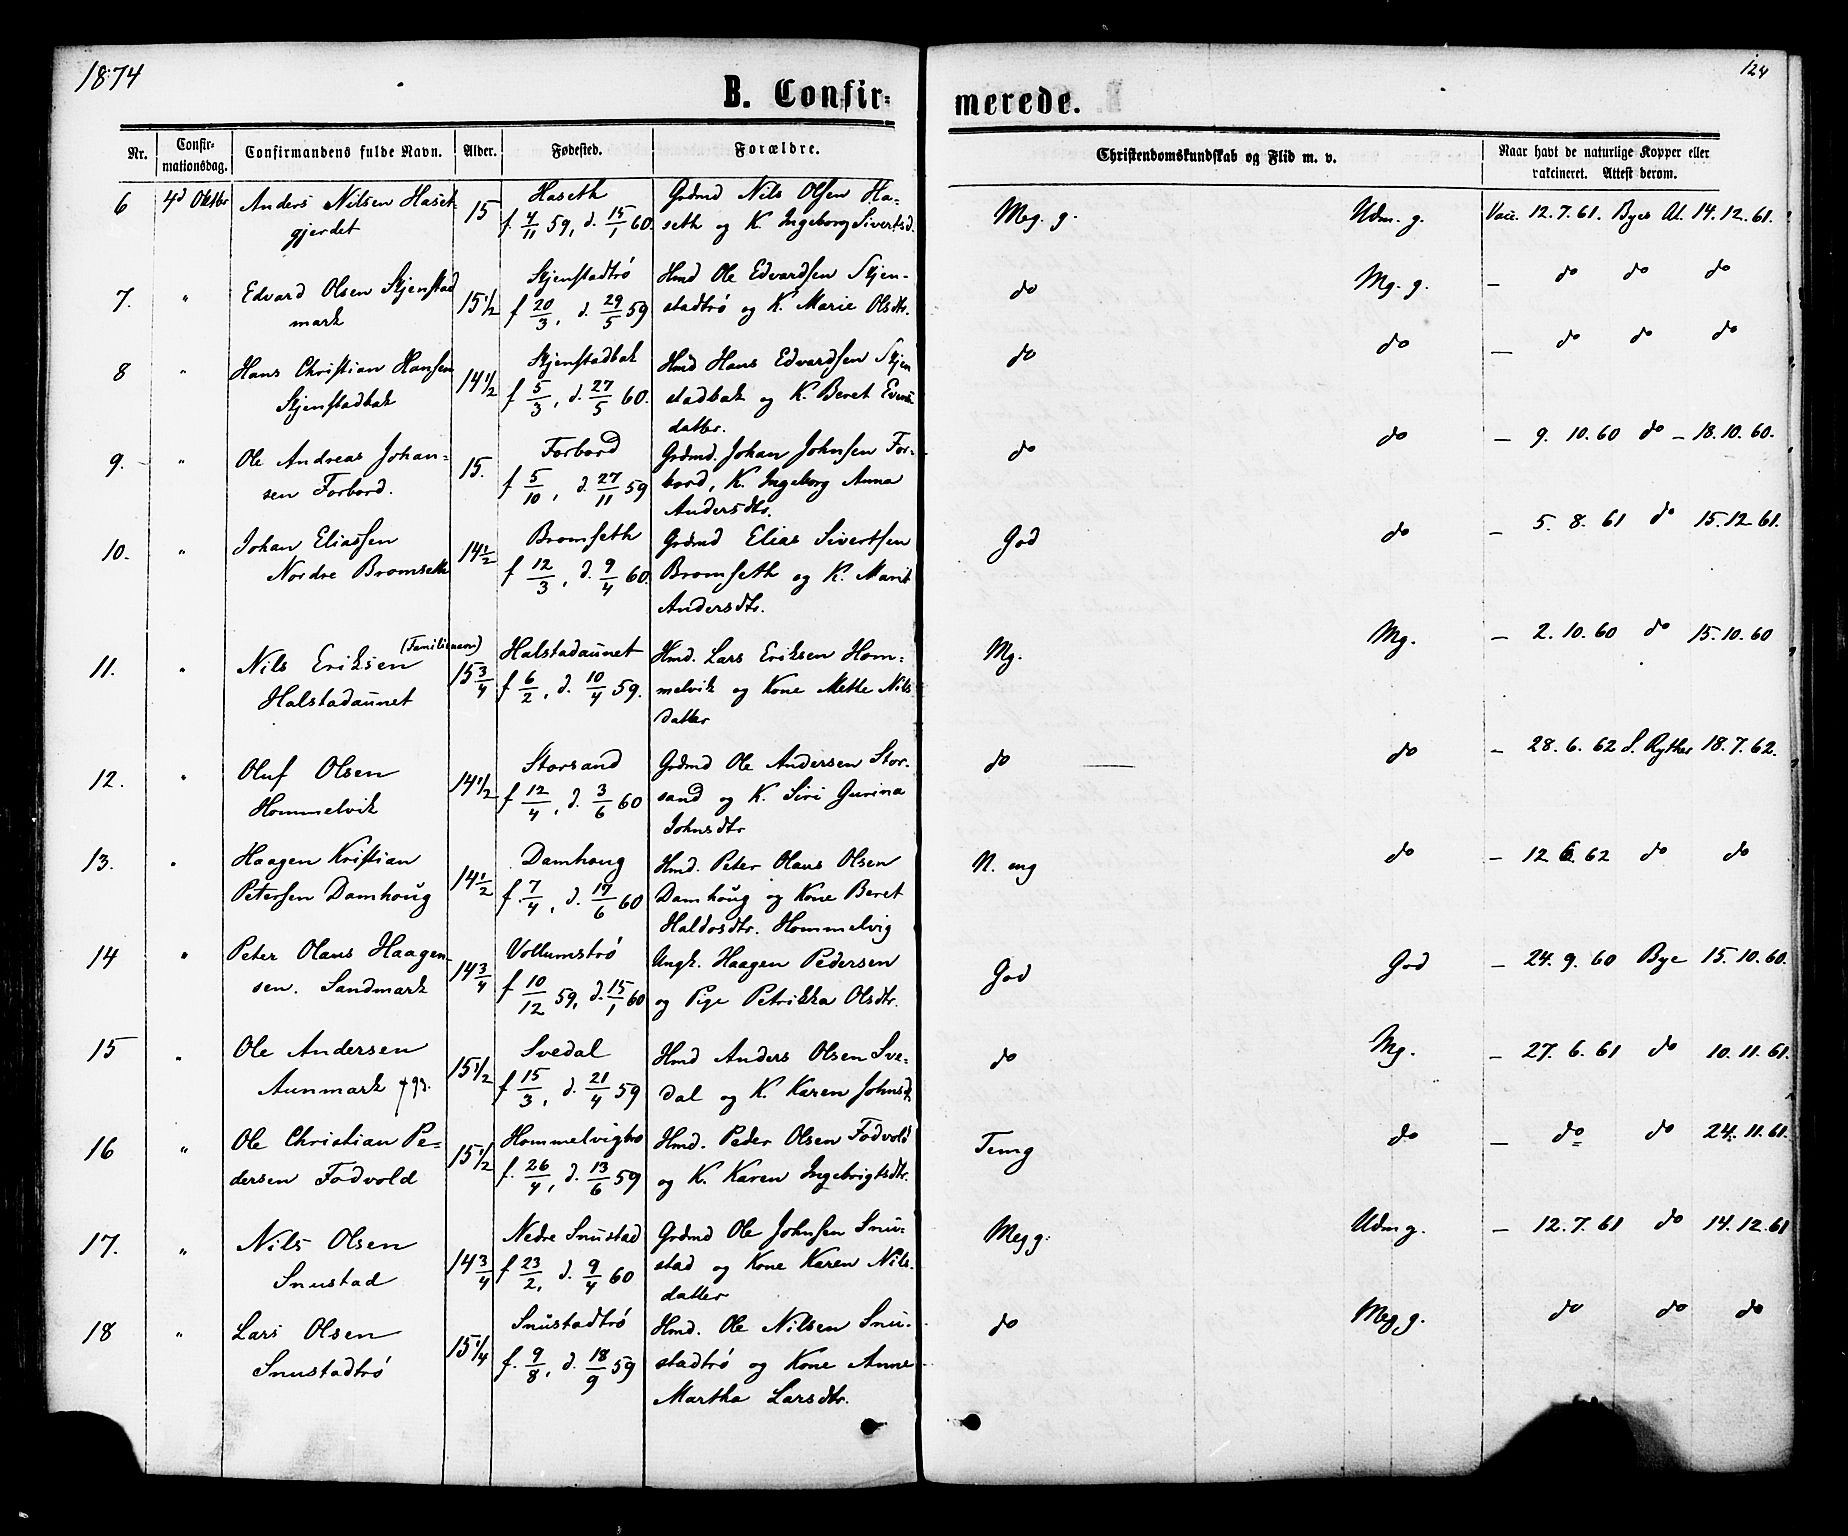 1874
124
B. Confir-
merede.
Nr.
Confir-
mationsdag.
Confirmandens fulde Navn.
Alder.
Fødested.
Forældre.
Christendomskundskab og Flid m. v.
Naar havt de naturlige Kopper eller
vakcineret. Attest derom.
6 4d Oktbr Anders Nilsen Haset- 15 Haseth Grdmd Nils Olsen Ha- Meg. g. Udm. g. Vac. 12.7.61. Byes At. 14.12.61.
gjerdet f. 4/11 59, d. 15/1 60. seth og K. Ingeborg Sivertsd.
7. " Edvard Olsen Stjenstad 15 1/2 Stjenstadtrø Hmd Ole Edvardsen Stjen- do Mg. g. — do do do
mark f 20/3, d. 29/5 59 stadtrø og K. Marie Olsdtr.
8 " Hans Christian Hansen 14 1/2 Stjenstadbak Hmd Hans Edvardsen Stjen do do — do do do
Stjenstadbak f 5/3, d. 27/5 60. stadbak og K. Beret
datter.
9. " Ole Andreas Johan- 15. Forbord Grdmd. Johan Johnsen For- do do — 9. 10. 60 do — 18.10.60.
sen Forbord. f 5/10, d. 27/11 59 bord, K. Ingeborg Anna
Andersdtr.
10. " Johan Eliassen 14 1/2 Bromseth Grdmd Elias Sivertsen God do — 5. 8. 61 do 15.12 61.
Nordre Bromseth f 12/3, d. 9/4 60. Bromseth og K. Marit
Andersdtr.
11. " Nils Eriksen (Familienavn) 15 3/4 Halstadaunet Hmd. Lars Eriksen Hom- Mg. Mg. — 2. 10. 60 do 15.10.60
Halstadaunet f 6/2, d. 10/4 59. melvik og Kone Mette Nils
datter
12. " Oluf Olsen 14 1/2 Storsand Grdmd Ole Andersen Stor- do do — 28. 6. 62 S. Rythe 18.7.62.
Hommelvik f. 12/4, d. 3/6 60 sand og K. Siri Gurina
Johnsdtr
13. " Haagen Kristian 14 1/2 Damhoug Hmd. Peter Olaus Olsen N. mg do — 12 6. 62 do do
Petersen Damhoug f. 7/4, d. 17/6 60 Damhoug og Kone Beret
Haldosdtr. Hommelvig
14 " Peter Olaus Haagen- 14 3/4 Vollumstrø Ungk. Haagen Pedersen God God — 24. 9. 60 Bye 15.10.60.
sen. Sandmark f 10/12 59, d. 15/1 60 og Pige Petrikka Olsdtr.
15 " Ole Andersen 15 1/2 Svedal Hmd Anders Olsen Sve- do Mg. — 27. 6. 61 do 10.11.61.
Aunmark f. 15/3, d. 21/4 59 dal og K. Karen Johnsd.
16 " Ole Christian Pe- 15 1/2 Hommelvigtrø Hmd. Peder Olsen Fodvold Temg do — do do 24.11.61.
dersen Fodvold f. 26/4, d. 13/6 59 og K. Karen Ingebrigtsdtr.
17. " Nils Olsen 14 3/4 Nedre Snustad Grdmd Ole Johnsen Snu- Megg. Udmg. — 12.7.61 do 14.12.61
Snustad f 23/2, d. 9/4 60 stad og Kone Karen Nils-
datter
18 " Lars Olsen 15 1/4 Snustadtrø Hmd. Ole Nilsen Snu- do Meg g. do do do
Snustadtrø f. 9/8, d. 18/9 59 stadtrø og Kone Anne
Martha Larsdtr.